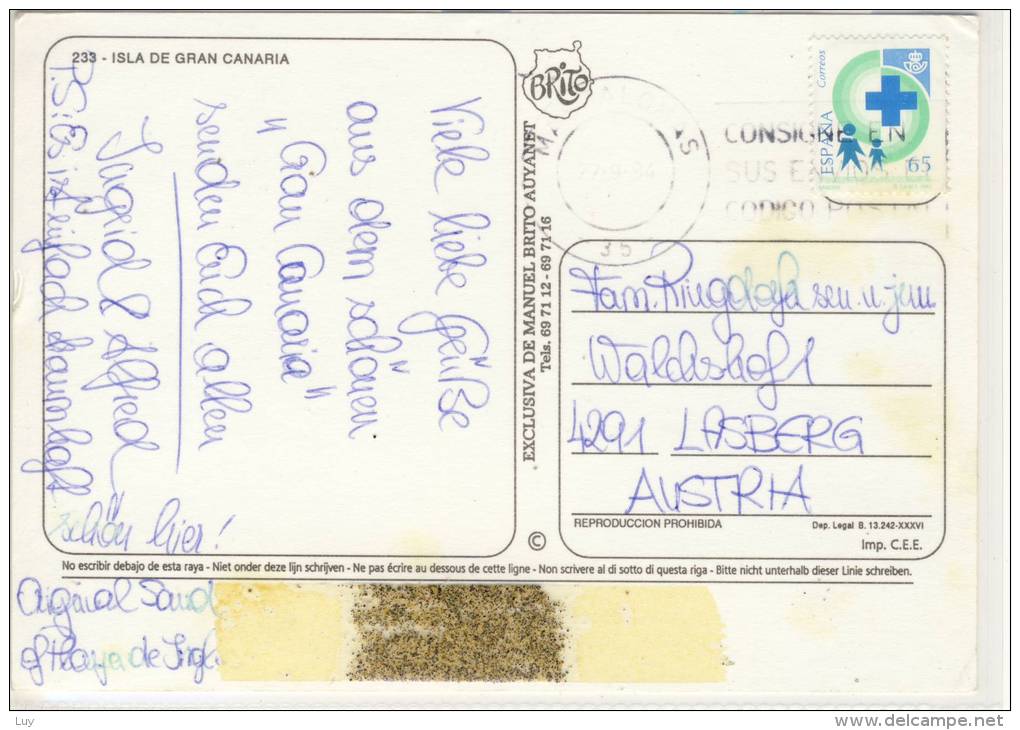 233 - ISLA DE GRAN CANARIA
Viele liebe Grüße
aus dem schönen
"Gran Canaria"
senden Euch allen
Ingrid & Alfred
P.S: Es ist einfach traumhaft
schön hier!
BRITO
EXCLUSIVA DE MANUEL BRITO AUYANET
Tels. 69 71 12 - 69 71 16
CONSIGNE EN
SUS
CODIGO
35
Correos
ESPAÑA
65
Fam. sen. u. jun.
4291 LASBERG
AUSTRIA
REPRODUCCION PROHIBIDA
Dep. Legal B. 13.242-XXXVI
Imp. C.E.E.
©
No escribir debajo de esta raya - Niet onder deze lijn schrijven - Ne pas écrire au dessous de cette ligne - Non scrivere al di sotto di questa riga - Bitte nicht unterhalb dieser Linie schreiben.
Original Sand
of Playa de Ingl
Luy